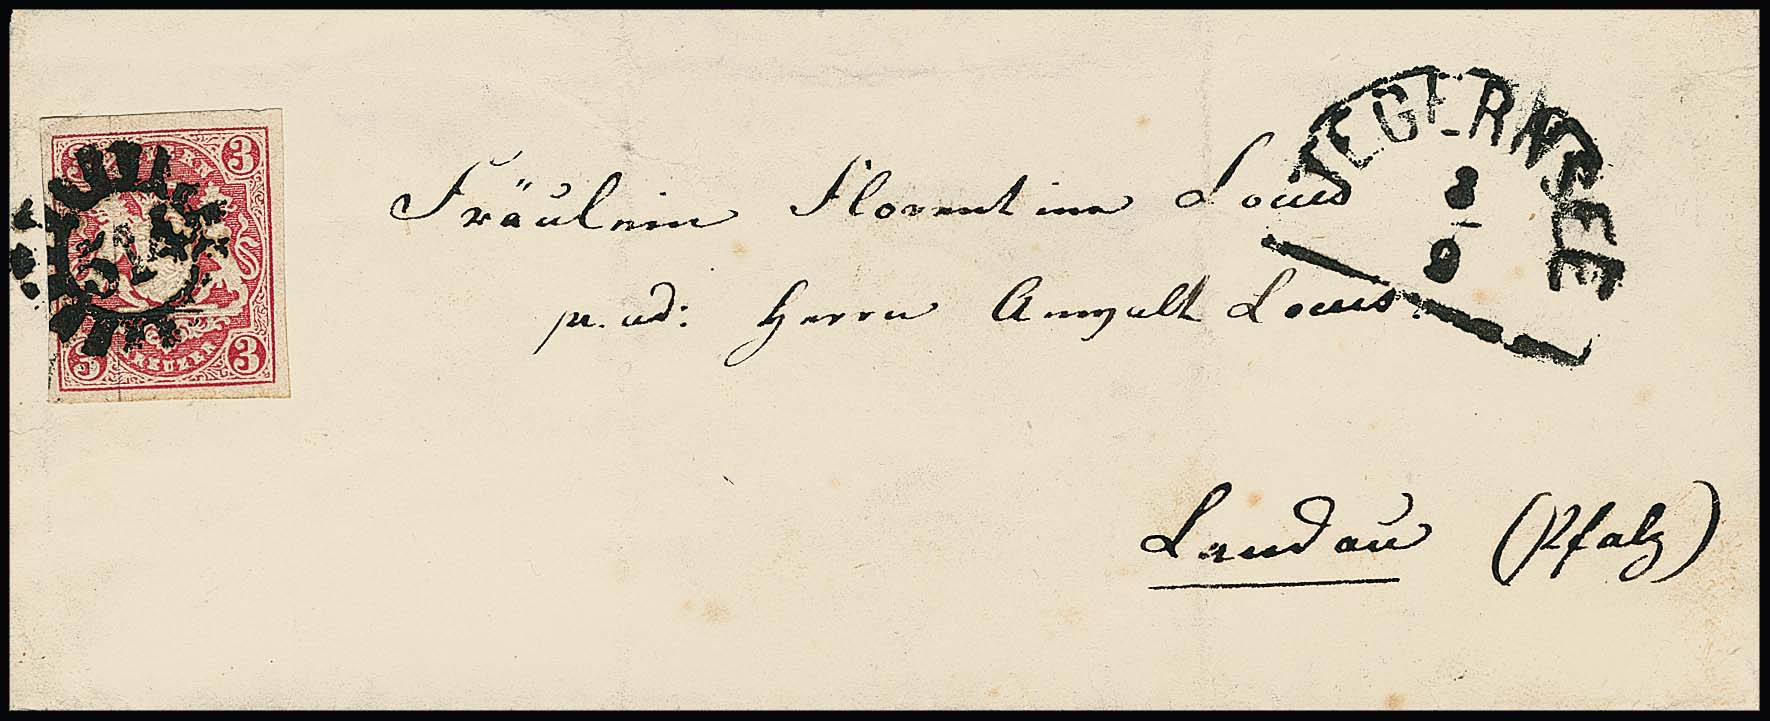 BAYERN
3 3
514
3 3
KREUZER
TEGERNSEE
8
9
Fräulein Florentine Louis
pr. ad: Herrn Anwalt Louis.
Landau (Pfalz)